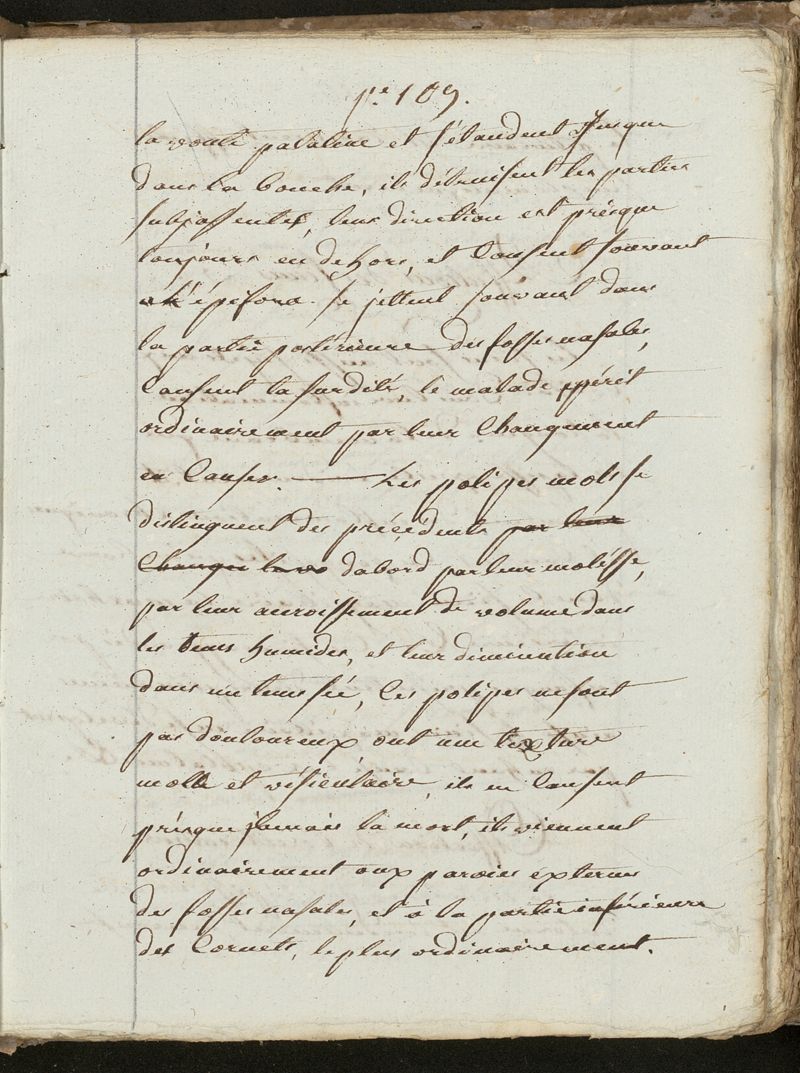 pe. 109.
la voute palatine et s'étendent jusque
dans la bouche, ils détruisent les parties
subjassentes, leur direction est présque
toujours en dehors, et Causent souvant
épifora. se jettent souvant dans
la partie postérieure des fosses nasales,
Causent la surdité, le malade périt
ordinairement par leur Changement
en Cancer. — Les polipes mols se
distinguent des précédents par leur
Changer leur dabord par leur molésse,
par leur acroissement de volume dans
les tems humides, et leur diminution
dans un tems séc, Ces polipes ne sont
pas douloureux ont une texture
molle et vésiculaire, ils ne Causent
présque jamais la mort, ils viennent
ordinairement aux paroies externes
des fosses nasales, et à la partie inférieure
des Cornets, le plus ordinairement.